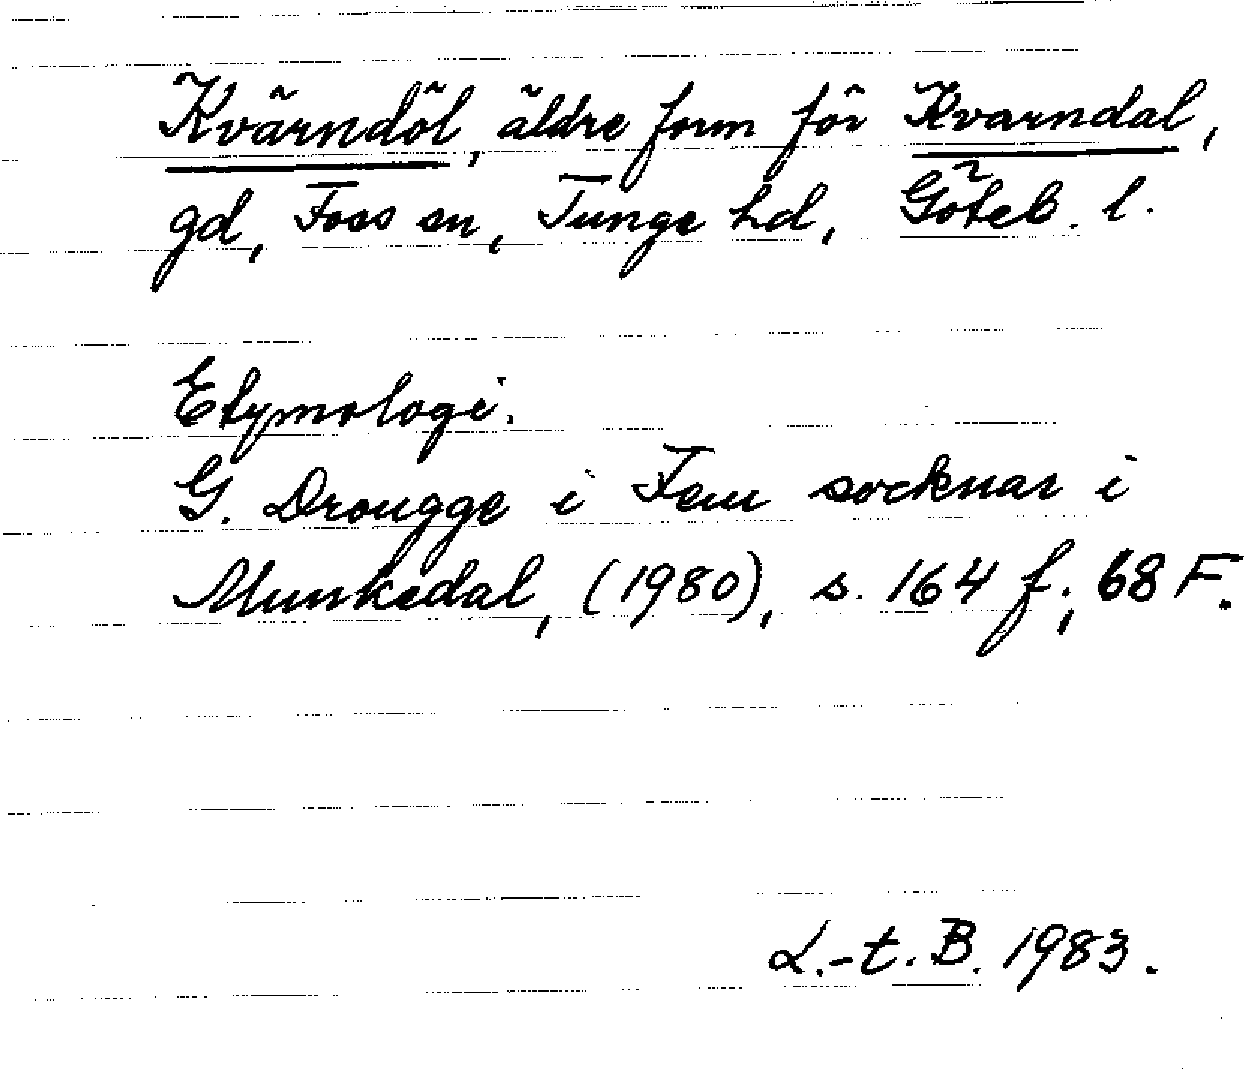 Kvärndöl, äldre form för Kvarndal,
gd, Foss sn, Tunge hd, Göteb. l.
Etymologi.
G. Drougge i Fem socknar i
Munkedal, (1980), s. 164 f.; 68 F.
L.-t. B. 1983.